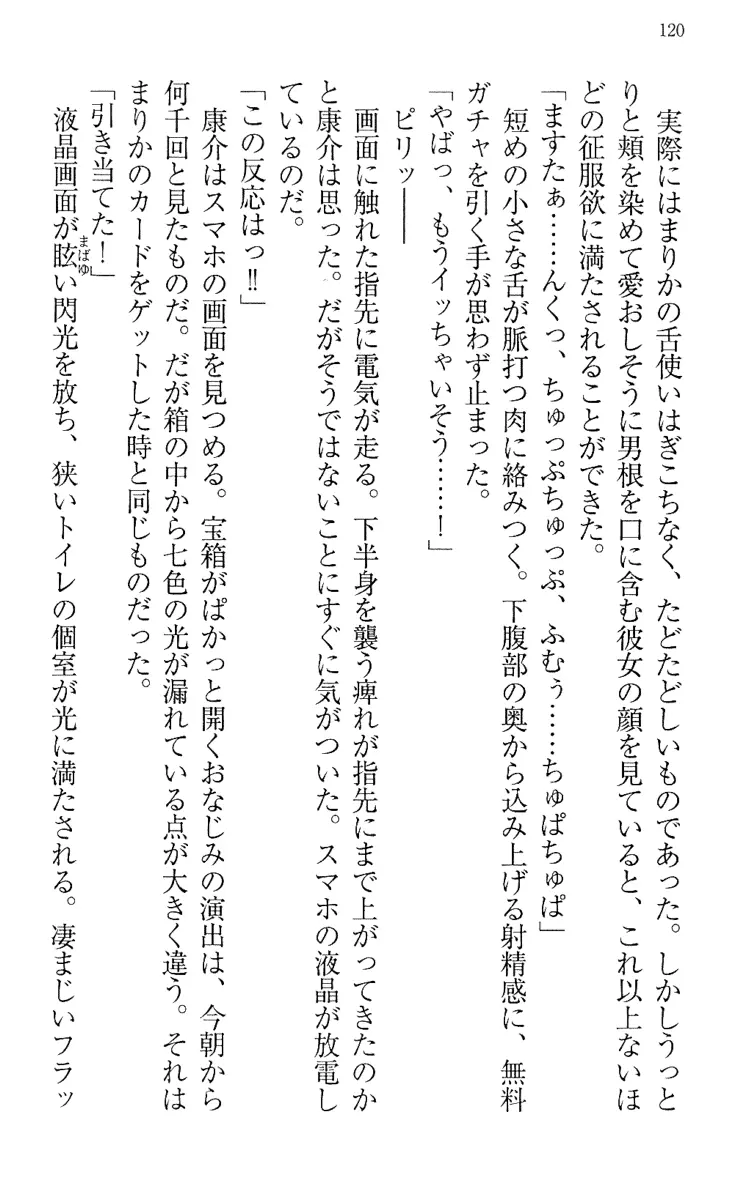 120
実際にはまりかの舌使いはぎこちなく、たどたどしいものであった。しかしうっと
りと頬を染めて愛おしそうに男根を口に含む彼女の顔を見ていると、これ以上ないほ
どの征服欲に満たされることができた。
「ますたぁ……んくっ、ちゅっぷちゅっぷ、ふむぅ……ちゅぱちゅぱ」
短めの小さな舌が脈打つ肉に絡みつく。下腹部の奥から込み上げる射精感に、無料
ガチャを引く手が思わず止まった。
「やばっ、もうイッちゃいそう……！」
ピリッ――
画面に触れた指先に電気が走る。下半身を襲う痺れが指先にまで上がってきたのか
と康介は思った。だがそうではないことにすぐに気がついた。スマホの液晶が放電し
ているのだ。
「この反応はっ‼」
康介はスマホの画面を見つめる。宝箱がぱかっと開くおなじみの演出は、今朝から
何千回と見たものだ。だが箱の中から七色の光が漏れている点が大きく違う。それは
まりかのカードをゲットした時と同じものだった。
「引き当てた！」
液晶画面が眩い閃光を放ち、狭いトイレの個室が光に満たされる。凄まじいフラッ
まばゆ